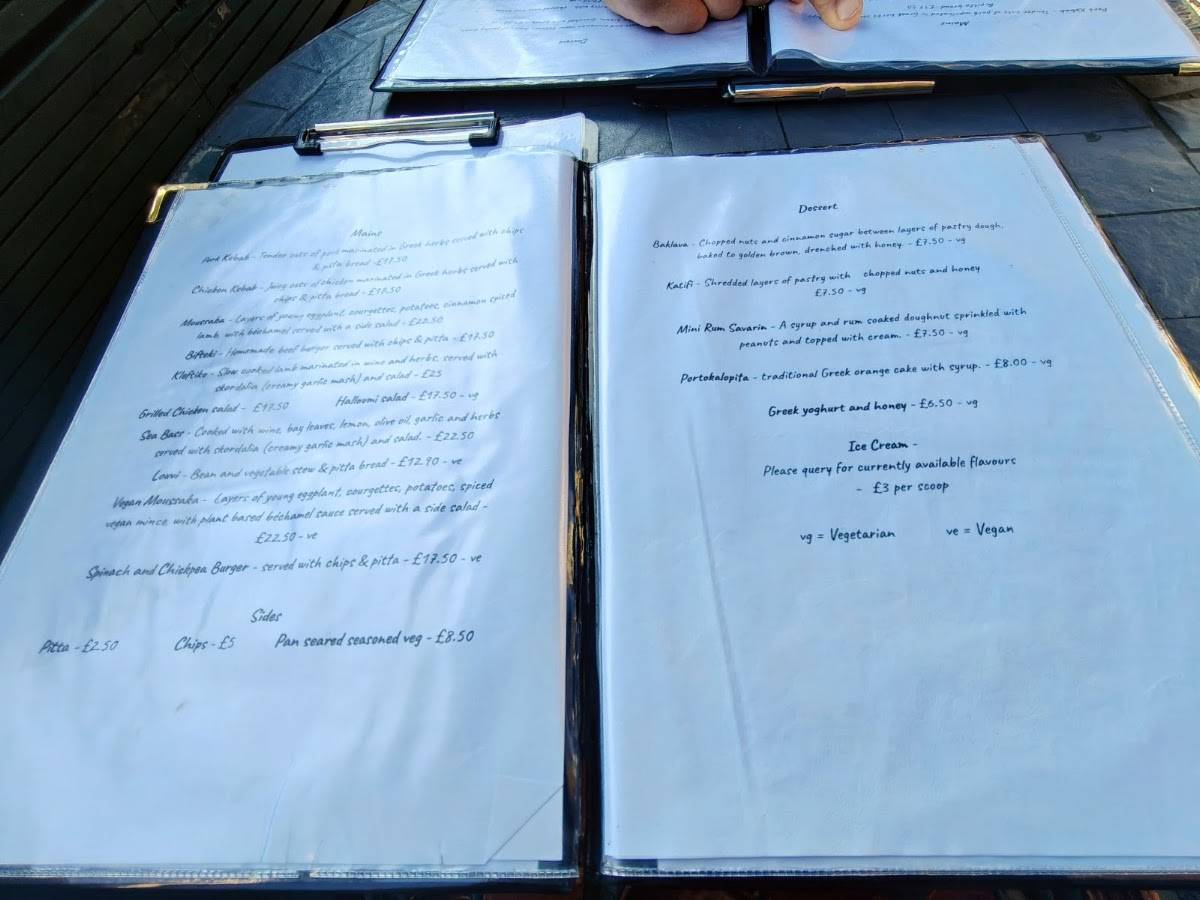 Mains
Pork Kebab - Tender cuts of pork marinated in Greek herbs served with chips
& pitta bread - £17.50
Chicken Kebab - Juicy cuts of chicken marinated in Greek herbs served with
chips & pitta bread - £17.50
Moussaka - Layers of young eggplant, courgettes, potatoes, cinnamon spiced
lamb, with béchamel served with a side salad - £22.50
Bifteki - Homemade beef burger served with chips & pitta - £17.50
Kleftiko - Slow cooked lamb marinated in wine and herbs, served with
skordalia (creamy garlic mash) and salad - £25
Grilled Chicken salad - £17.50 Halloumi salad - £17.50 - vg
Sea Bass - Cooked with wine, bay leaves, lemon, olive oil, garlic and herbs
served with skordalia (creamy garlic mash) and salad. - £22.50
Louvi - Bean and vegetable stew & pitta bread - £12.90 - ve
Vegan Moussaka - Layers of young eggplant, courgettes, potatoes, spiced
vegan mince, with plant based béchamel sauce served with a side salad -
£22.50 - ve
Spinach and Chickpea Burger - served with chips & pitta - £17.50 - ve
Sides
Pitta - £2.50 Chips - £5 Pan seared seasoned veg - £8.50
Dessert
Baklava - Chopped nuts and cinnamon sugar between layers of pastry dough,
baked to golden brown, drenched with honey. - £7.50 - vg
Katifi - Shredded layers of pastry with chopped nuts and honey
£7.50 - vg
Mini Rum Savarin - A syrup and rum soaked doughnut sprinkled with
peanuts and topped with cream. - £7.50 - vg
Portokalopita - traditional Greek orange cake with syrup. - £8.00 - vg
Greek yoghurt and honey - £6.50 - vg
Ice Cream -
Please query for currently available flavours
- £3 per scoop
vg = Vegetarian ve = Vegan
Mains
Dessert